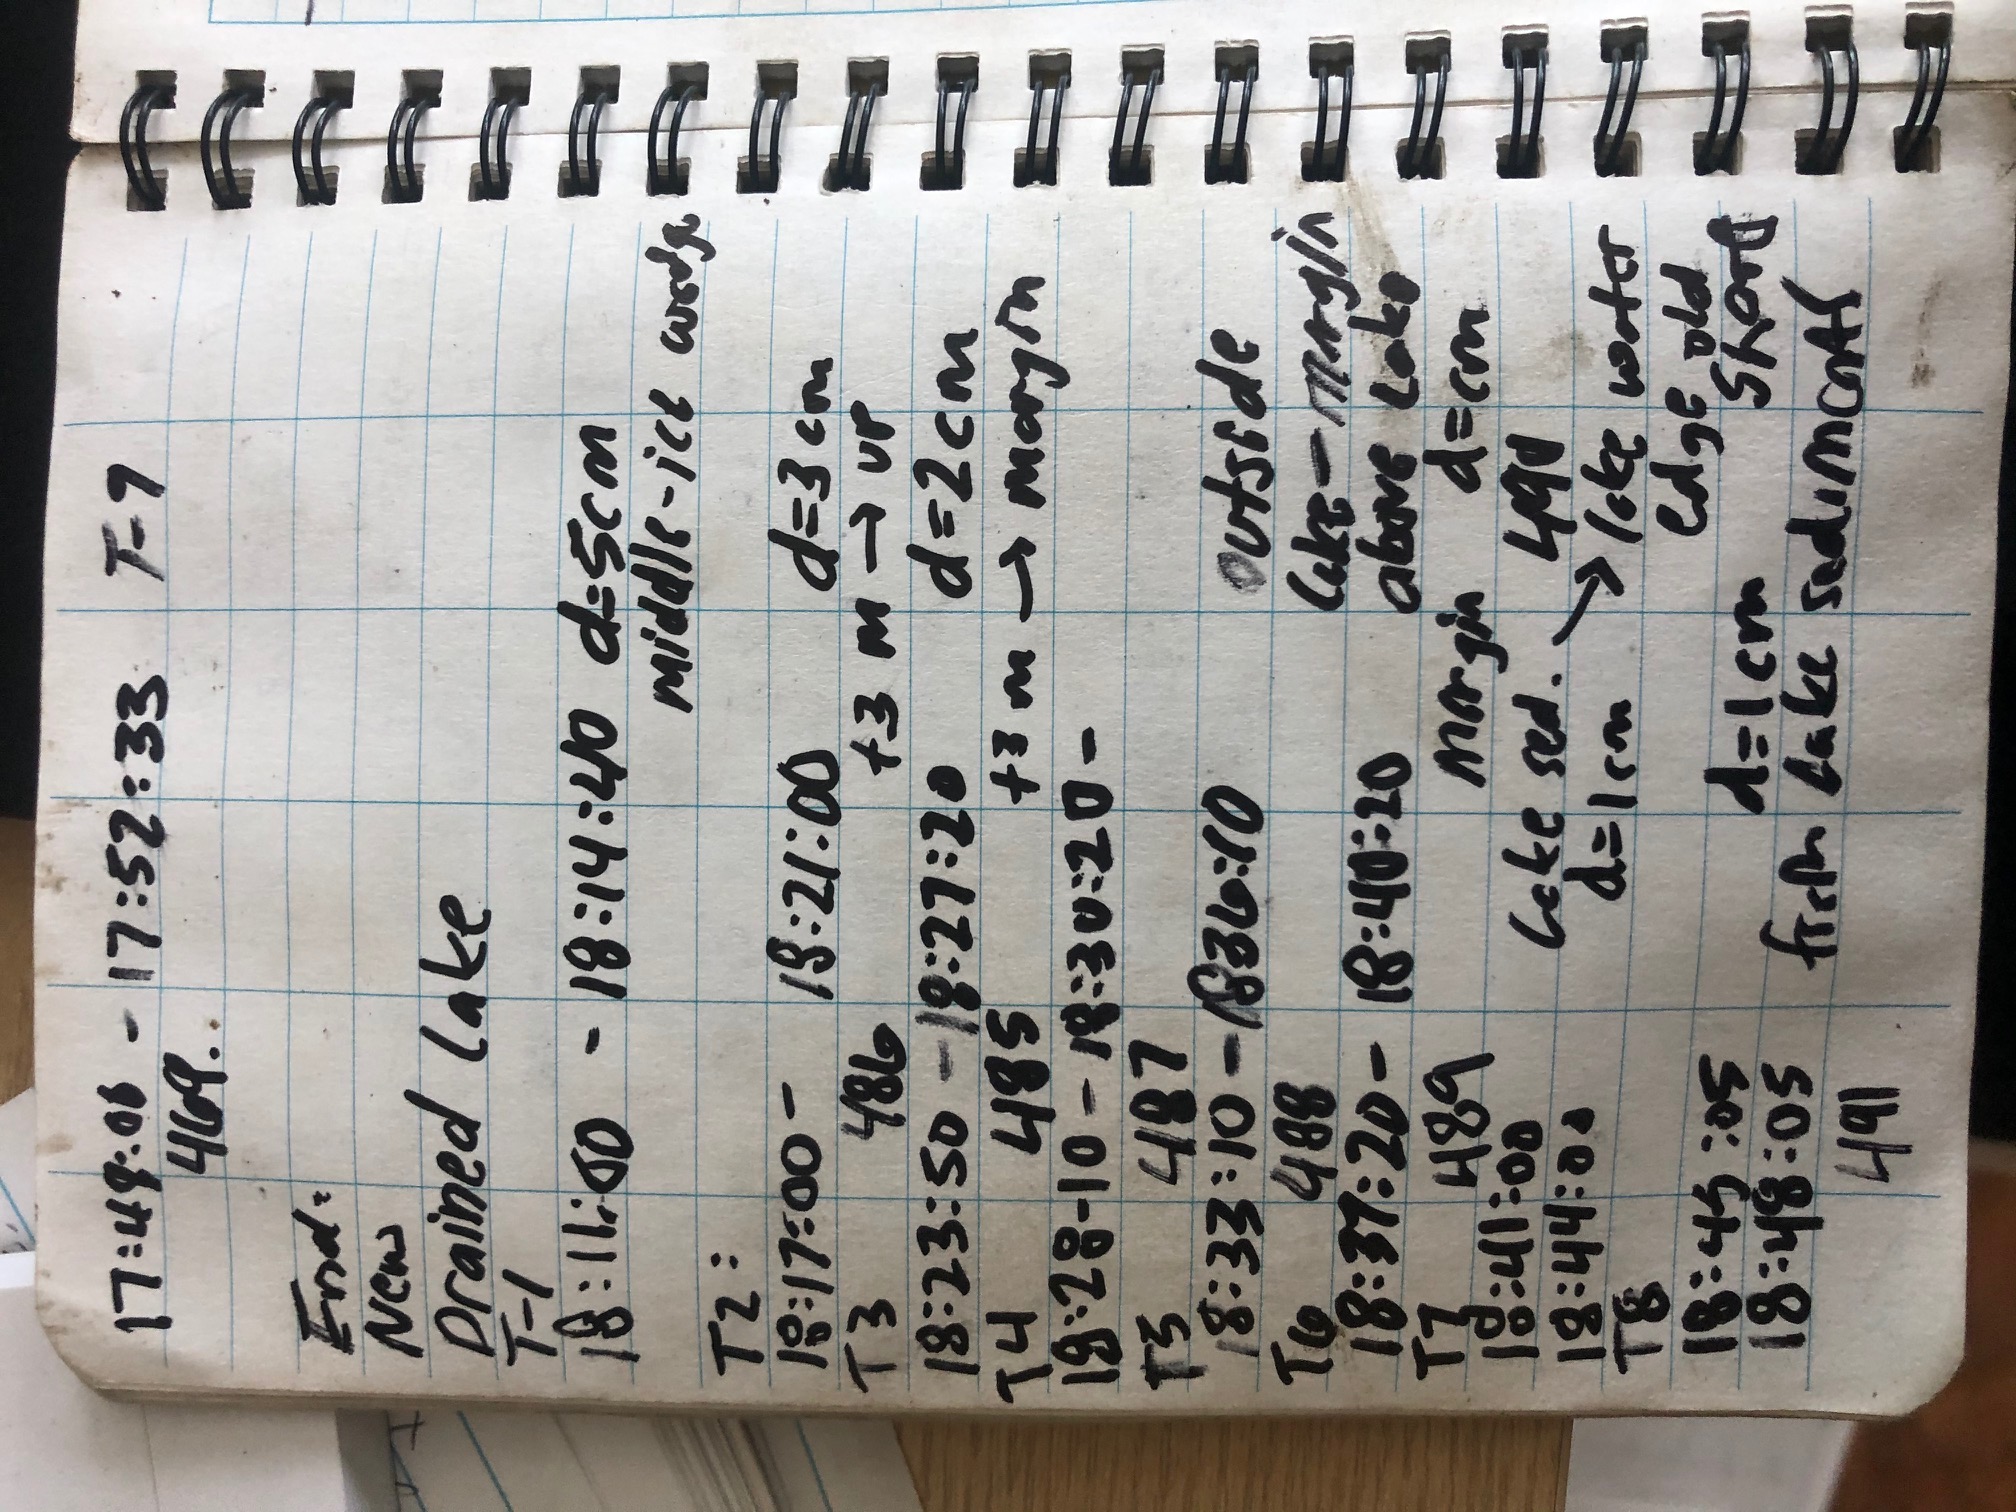 17:49:06 - 17:52:33 T-7
469.
End:
New
Drained Lake
T-1
18:11:50 - 18:14:40 d=5cm
middle-ice wedge
T2:
18:17:00 - 18:21:00 d=3cm
T3 486 +3 m → up
18:23:50 - 18:27:20 d=2cm
T4 485 +3 m → margin
18:28-10 - 18:30:20 -
T5 487
18:33:10 - 1836:10 outside
T6 488 lake-margin
18:37:20 - 18:40:20 above lake
T7 489 margin d=cm
18:41:00 lake sed. → 490
18:44:00 d=1cm lake water
T8 edge old
18:45:05 d=1cm shore
18:48:05 from lake sediments
491